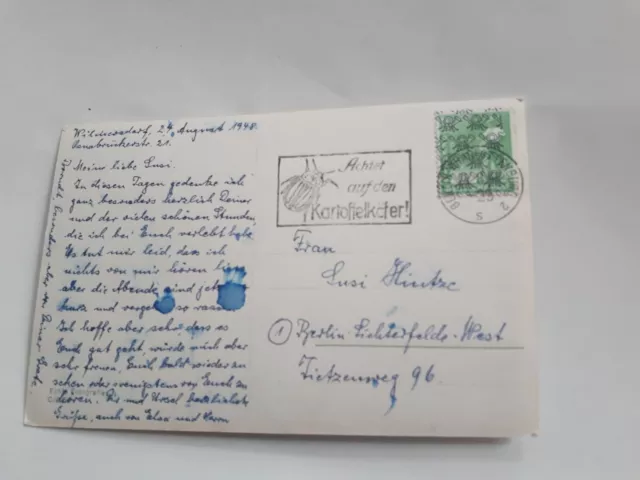 Wilmersdorf, 24. August 1948.
Osnabrückerstr. 21.
Meine liebe Susi.
In diesen Tagen gedenke ich
ganz besonders herzlich Deiner
und der vielen schönen Stunden,
die ich bei Euch verlebt habe.
Es tut mir leid, dass ich
nichts von mir hören liess
aber die Abende sind jetzt
kurz und vergehn so rasch
Ich hoffe aber sehr, dass es
Euch gut geht, würde mich aber
sehr freuen, Euch bald wieder zu
sehen oder wenigstens von Euch zu
hören. Dir und Ursel herzlichste
Grüße, auch von und Herrn
Achtet
auf den
Kartoffelkäfer!
Frau
Susi Hintze
1 Berlin Lichterfelde-West
Tietzenweg 96.